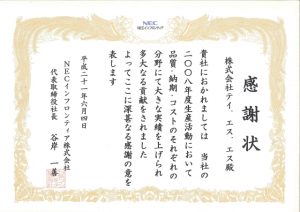 NEC
NECインフロンティア
感謝状
株式会社テイ．エス．エス殿
貴社におかれましては 当社の
二〇〇八年度生産活動において
品質・納期・コストのそれぞれの
分野にて大きな実績を上げられ
多大なる貢献をされました
よってここに深甚なる感謝の意を
表します
平成二十一年六月四日
NECインフロンティア株式会社
代表取締役社長 谷岸 一善